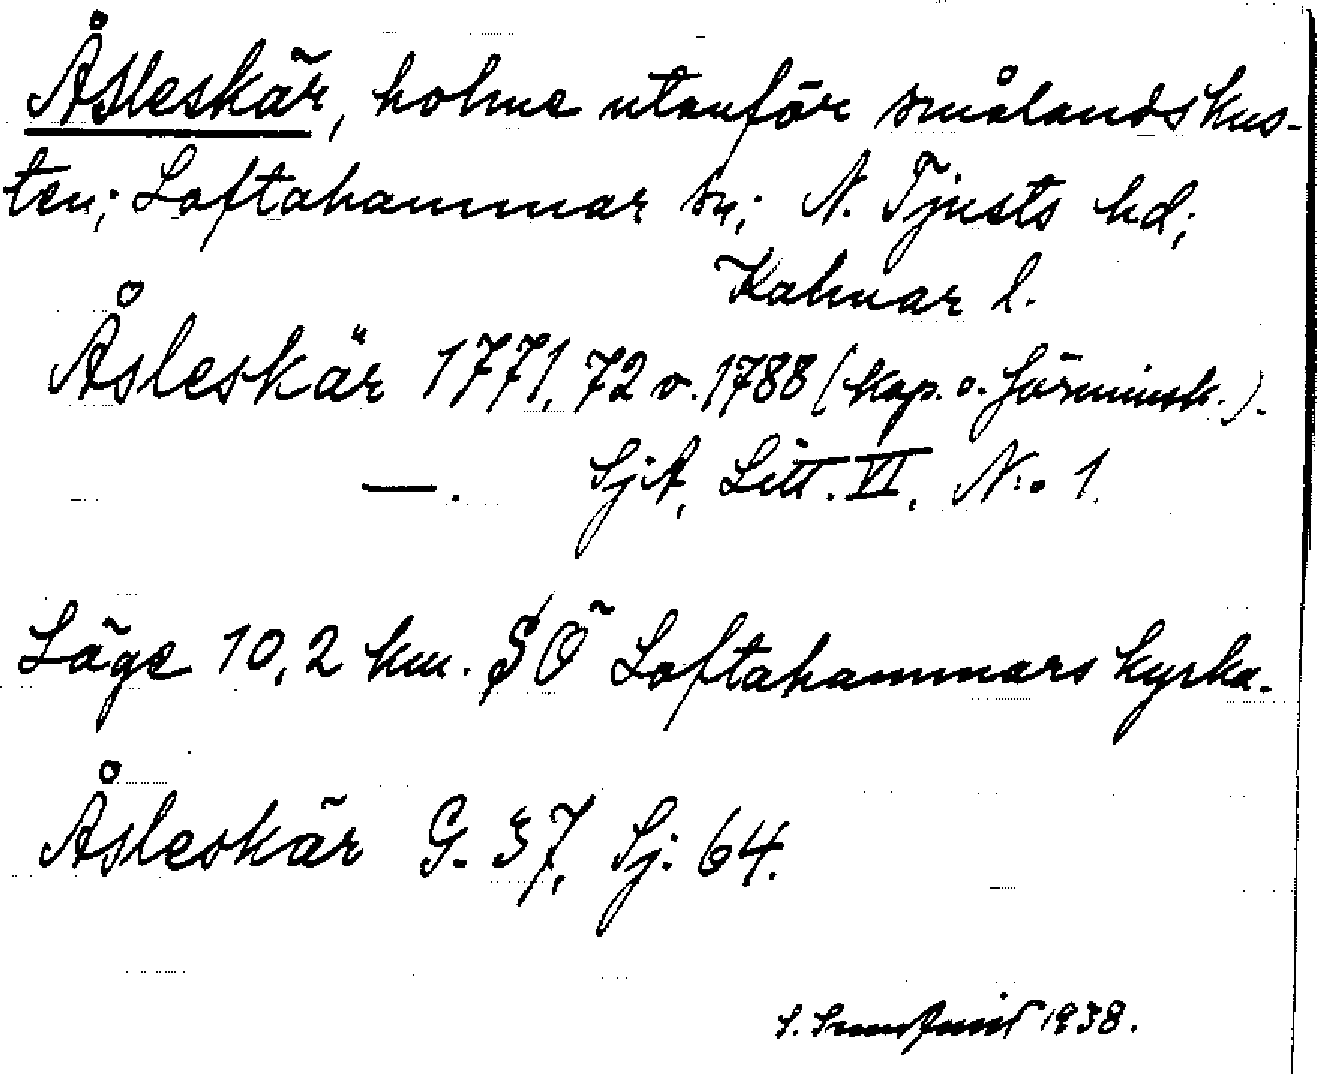 Åsleskär, holme utanför smålandskus-
ten; Loftahammar sn; N. Tjusts hd;
Kalmar l.
Åsleskär 1771, 72 o. 1788 (kop. o. förminsk.).
—. SjA, Litt. VI, N:o 1.
Läge 10,2 km. SÖ Loftahammars kyrka.
Åsleskär G. 37, Sj. 64.
S. 1938.